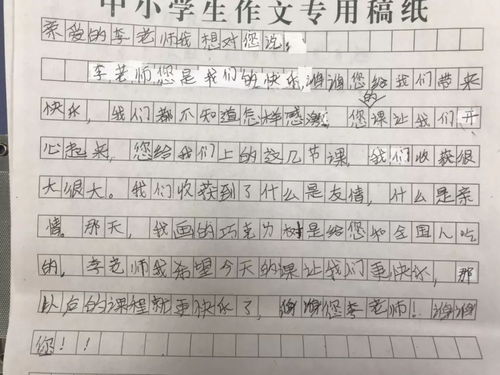 中小学生作文专用稿纸
亲爱的李老师我想对您说：
李老师您是我们的快乐，谢谢您给我们带来
快乐，我们都不知道怎样感激。您的课让我们开
心起来，您给我们上的这几节课，我们收获很
大很大。我们收获到了什么是友情，什么是亲
情。那天，我画的巧克力树是给您和全国人吃
的，李老师我希望今天的课让我们更快乐，那
以后的课程就更快乐了，谢谢您李老师！谢谢
您！！